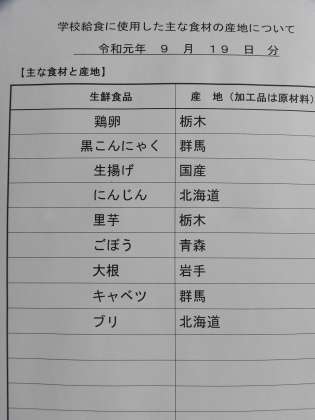 学校給食に使用した主な食材の産地について
令和元年 ９ 月 １９ 日 分
【主な食材と産地】
生鮮食品 産 地（加工品は原材料）
鶏卵 栃木
黒こんにゃく 群馬
生揚げ 国産
にんじん 北海道
里芋 栃木
ごぼう 青森
大根 岩手
キャベツ 群馬
ブリ 北海道